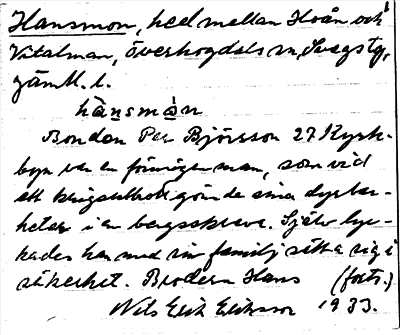 Hansmon, hed mellan Hoån och
Vitalman, Överhogdals sn, Svegs tg,
Jämtl. l.
hänsmån
Bonden Per Björsson 27 Kyrk-
byn var en förmögen man, som vid
ett krigsutbrott gömde sina dyrbar-
heter i en bergsskreva. Själv lyc-
kades han med sin familj sätta sig i
säkerhet. Brodern Hans (forts.)
Nils Erik Eriksson 1933.